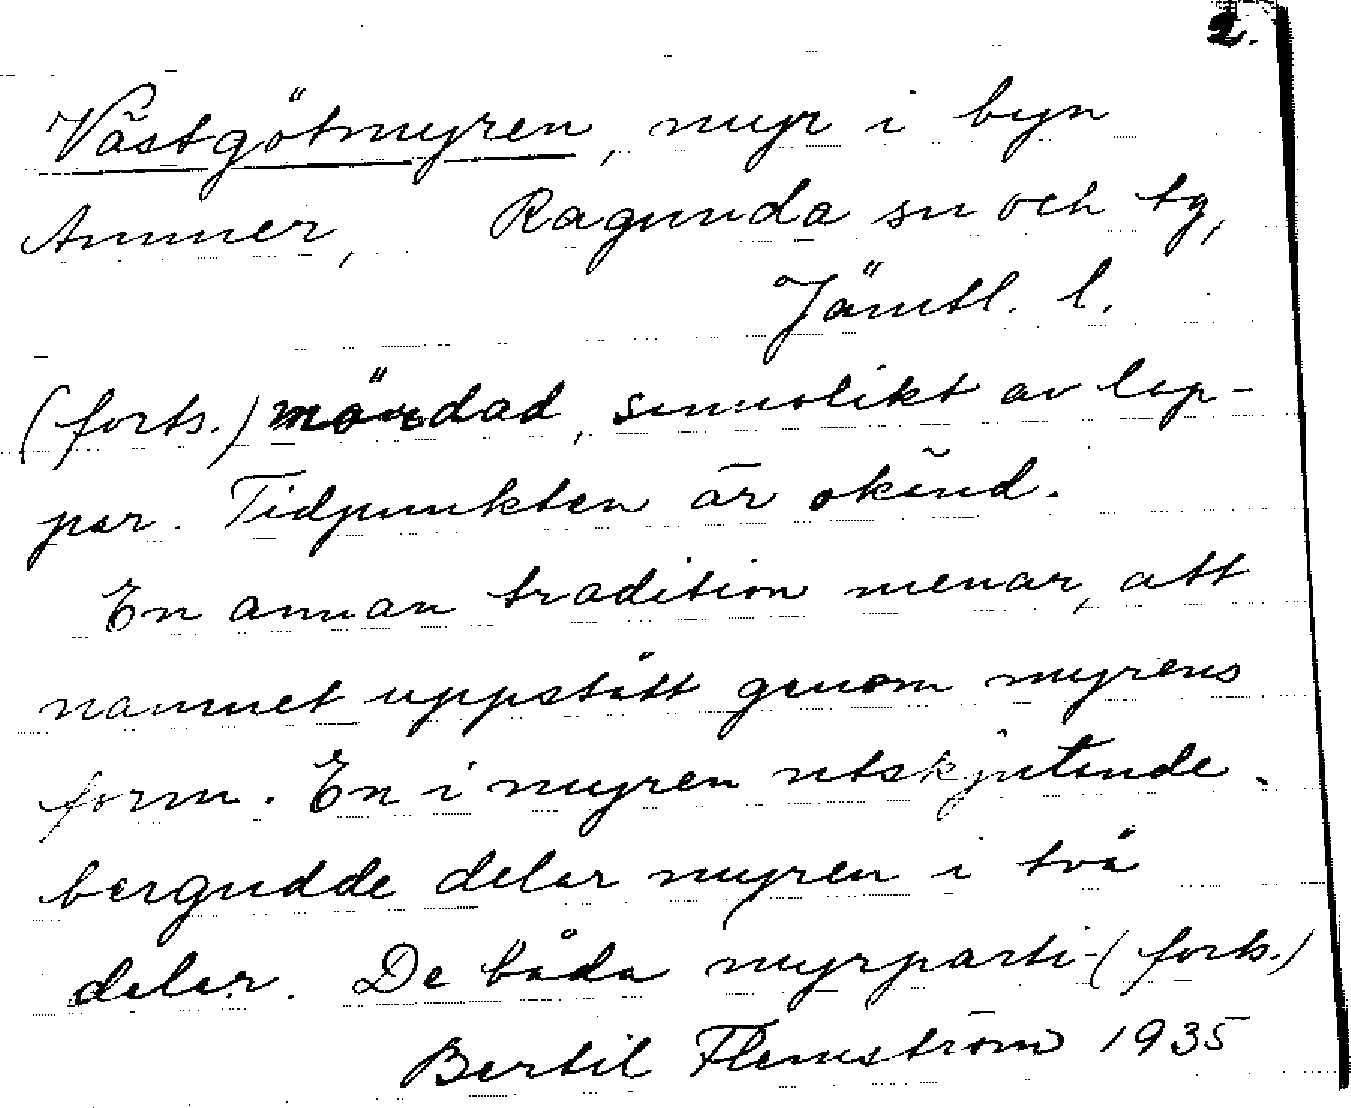 2.
Västgötmyren, myr i byn
Ammer, Ragunda sn och tg,
Jämtl. l.
(forts.) mördad, sannolikt av lap-
par. Tidpunkten är okänd.
En annan tradition menar, att
namnet uppstått genom myrens
form. En i myren utskjutande
bergudde delar myren i två
delar. De båda myrparti- (forts.)
Bertil Flemström 1935